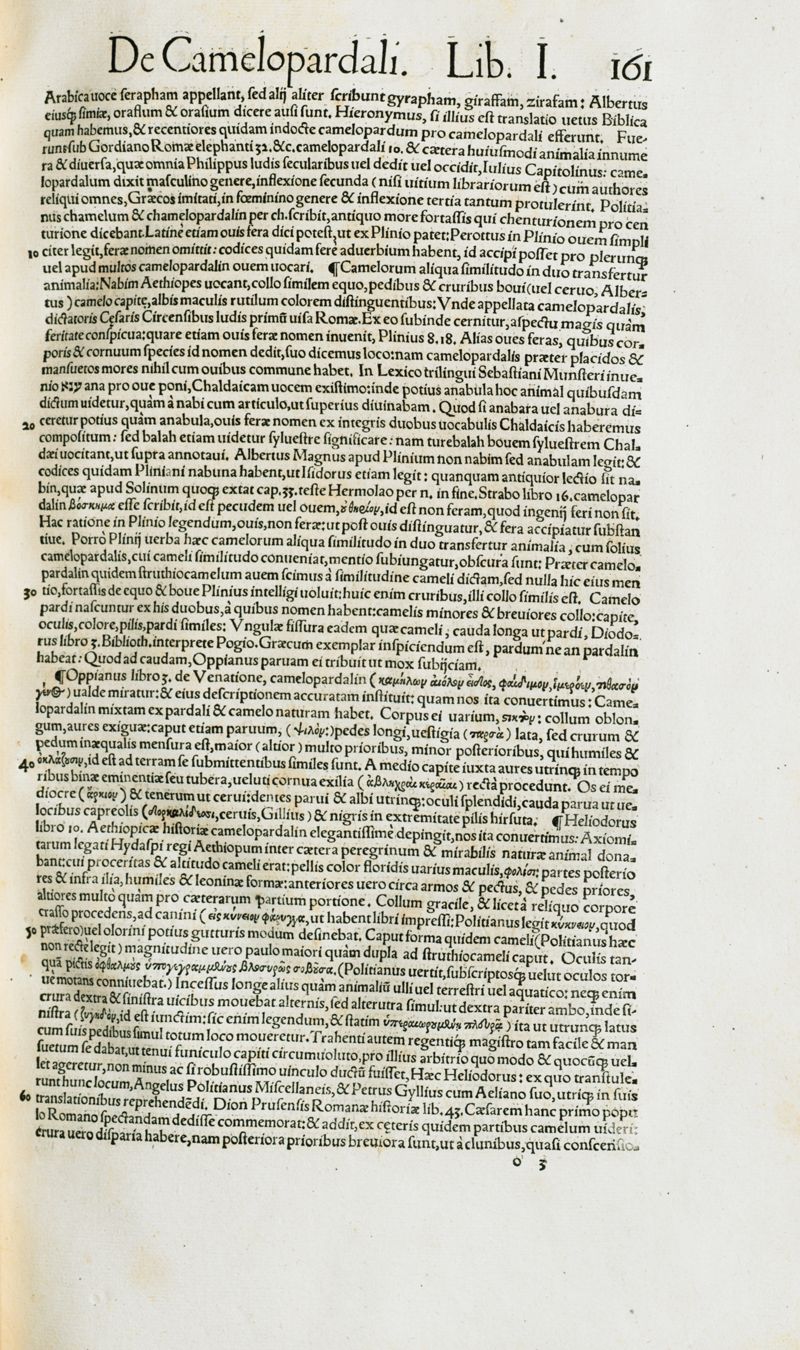 De Camelopardali. Lib. I. 161
Arabica uoce serapham appellant, sed alij aliter scribunt gyrapham, giraffam, zirafam: Albertus
eiusq́; simiæ, oraflum & orasium dicere ausi sunt. Hieronymus, si illius est translatio uetus Biblica
quam habemus, & recentiores quidam indocte camelopardum pro camelopardali efferunt. Fue-
runt sub Gordiano Romæ elephanti 32. &c. camelopardali 10. & cætera huiusmodi animalia innume
ra & diuersa, quæ omnia Philippus ludis secularibus uel dedit uel occidit, Iulius Capitolinus: came-
lopardalum dixit masculino genere, inflexione secunda (nisi uitium librariorum est) cum authores
reliqui omnes, Græcos imitati, in fœminino genere & inflexione tertia tantum protulerint. Politia-
nus chamelum & chamelopardalin per ch. scribit, antiquo more fortassis qui chenturionem pro cen
turione dicebant. Latine etiam ouis fera dici potest, ut ex Plinio patet: Perottus in Plinio ouem simpli
10 citer legit, feræ nomen omittit: codices quidam fere aduerbium habent, id accipi posset pro plerunq;
uel apud multos camelopardalin ouem uocari. ¶ Camelorum aliqua similitudo in duo transfertur
animalia: Nabim Aethiopes uocant, collo similem equo, pedibus & cruribus boui (uel ceruo, Alber-
tus) camelo capite, albis maculis rutilum colorem distinguentibus: Vnde appellata camelopardalis,
dictatoris Cęsaris Circensibus ludis primũ uisa Romæ. Ex eo subinde cernitur, aspectu magis quàm
feritate conspicua: quare etiam ouis feræ nomen inuenit, Plinius 8.18. Alias oues feras, quibus cor-
poris & cornuum species id nomen dedit, suo dicemus loco: nam camelopardalis præter placidos &
mansuetos mores nihil cum ouibus commune habet. In Lexico trilingui Sebastiani Munsteri inue-
nio ענא ana pro oue poni, Chaldaicam uocem existimo: inde potius anabula hoc animal quibusdam
dictum uidetur, quàm à nabi cum articulo, ut superius diuinabam. Quod si anabara uel anabura di-
20 ceretur potius quàm anabula, ouis feræ nomen ex integris duobus uocabulis Chaldaicis haberemus
compositum: sed balah etiam uidetur syluestre significare: nam turebalah bouem syluestrem Chal-
dæi uocitant, ut supra annotaui. Albertus Magnus apud Plinium non nabim sed anabulam legit: &
codices quidam Pliniani nabuna habent, ut Isidorus etiam legit: quanquam antiquior lectio sit na-
bin, quæ apud Solinum quoq; extat cap. 33. teste Hermolao per n. in fine. Strabo libro 16. camelopar
dalin βόσκημα esse scribit, id est pecudem uel ouem, ȣ̓ θηρίον, id est non feram, quod ingenij feri non sit.
Hac ratione in Plinio legendum, ouis, non feræ: ut post ouis distinguatur, & fera accipiatur substan
tiue. Porro Plinij uerba hæc camelorum aliqua similitudo in duo transfertur animalia, cum solius
camelopardalis, cui cameli similitudo conueniat, mentio subiungatur, obscura sunt: Præter camelo-
pardalin quidem struthiocamelum auem scimus à similitudine cameli dictam, sed nulla hic eius men
30 tio, fortassis de equo & boue Plinius intelligi uoluit: huic enim cruribus, illi collo similis est. Camelo
pardi nascuntur ex his duobus, à quibus nomen habent: camelis minores & breuiores collo: capite,
oculis, colore, pilis, pardi similes: Vngulæ fissura eadem quæ cameli, cauda longa ut pardi, Diodo-
rus libro 3. Biblioth. interprete Pogio. Græcum exemplar inspiciendum est, pardum ne an pardalin
habeat: Quod ad caudam, Oppianus paruam ei tribuit ut mox subijciam.
¶ Oppianus libro 3. de Venatione, camelopardalin (καμήλων αἰόλον εἶδος, φαίδιμον, ἱμερόεν, τιθασὸν
γένος) ualde miratur: & eius descriptionem accuratam instituit: quam nos ita conuertimus: Came-
lopardalin mixtam ex pardali & camelo naturam habet. Corpus ei uarium, στικτὸν: collum oblon-
gum, aures exiguæ: caput etiam paruum, (ψιλόν:) pedes longi, uestigia (ταρσὰ) lata, sed crurum &
pedum inæqualis mensura est, maior (altior) multo prioribus, minor posterioribus, qui humiles &
40 ὀκλάζουσιν, id est ad terram se submittentibus similes sunt. A medio capite iuxta aures utrinq; in tempo
ribus binæ eminentiæ seu tubera, ueluti cornua exilia (ἀβληχραὶ κεραῖαι) rectà procedunt. Os ei me-
diocre (ἄρκιον) & tenerum ut cerui: dentes parui & albi utrinq;: oculi splendidi, cauda parua ut ue-
locibus capreolis (δορκαλίδεσσι, ceruis, Gillius) & nigris in extremitate pilis hirsuta. ¶ Heliodorus
libro 10. Aethiopicæ historiæ camelopardalin elegantissime depingit, nos ita conuertimus: Axiomi-
tarum legati Hydaspi regi Aethiopum inter cætera peregrinum & mirabilis naturæ animal dona-
bant: cui proceritas & altitudo cameli erat: pellis color floridis uarius maculis, φολίσι: partes posterio
res & infra ilia, humiles & leoninæ formæ: anteriores uero circa armos & pectus, & pedes priores,
altiores multo quàm pro cæterarum partium portione. Collum gracile, & licet à reliquo corpore
crasso procedens, ad canini (εἰς κύνειον φάρυγγα, ut habent libri impressi: Politianus legit κύκνειον, quod
50 præfero) uel olorini potius gutturis modum desinebat. Caput forma quidem cameli (Politianus hæc
non recte legit) magnitudine uero paulo maiori quàm dupla ad struthiocameli caput. Oculis tan-
quã pictis ὀφθαλμοὺς ὑπογεγραμμένους βλοσυρῶς σοβοῦσα, (Politianus uertit, subscriptosq; uelut oculos tor-
uè motans conniuebat.) Incessus longe alius quàm animaliũ ulli uel terrestri uel aquatico: neq; enim
crura dextra & sinistra uicibus mouebat alternis, sed alterutra simul: ut dextra pariter ambo, inde si-
nistra (ζυγηδὸν, id est iunctim: sic enim legendum, & statim ὑπεραιωρουμένην πλευρᾶς) ita ut utrunq; latus
cum suis pedibus simul totum loco moueretur. Trahenti autem regentiq; magistro tam facile & man
suetum se dabat, ut tenui funiculo capiti circumuoluto, pro illius arbitrio quo modo & quocũq; uel-
let ageretur, non minus ac si robustissimo uinculo ductũ fuisset, Hæc Heliodorus: ex quo transtule-
runt hunc locum, Angelus Politianus Miscellaneis, & Petrus Gyllius cum Aeliano suo, utriq; in suis
60 translationibus reprehendẽdi. Dion Prusensis Romanæ historiæ lib. 43. Cæsarem hanc primo popu
lo Romano spectandam dedisse commemorat: & addit, ex cęteris quidem partibus camelum uideri:
crura uero disparia habere, nam posteriora prioribus breuiora sunt, ut à clunibus, quasi conscensio-
o 3